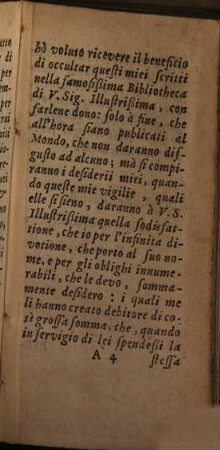 hò voluto ricevere il beneficio
di occultar questi miei scritti
nella famosissima Bibliotheca
di V. Sig. Illustrissima, con
farlene dono: solo à fine, che
all'hora siano publicati al
Mondo, che non daranno dis-
gusto ad alcuno; mà si compi-
ranno i desiderii miei, quan-
do queste mie vigilie, quali
elle si sieno, daranno à V. S.
Illustrissima quella sodisfat-
tione, che io per l'infinita di-
votione, che porto al suo no-
me, e per gli oblighi innume-
rabili, che le devo, somma-
mente desidero: i quali me
li hanno creato debitore di co-
sè grossa somma, che, quando
in servigio di lei spendessi la
A 4 stessa